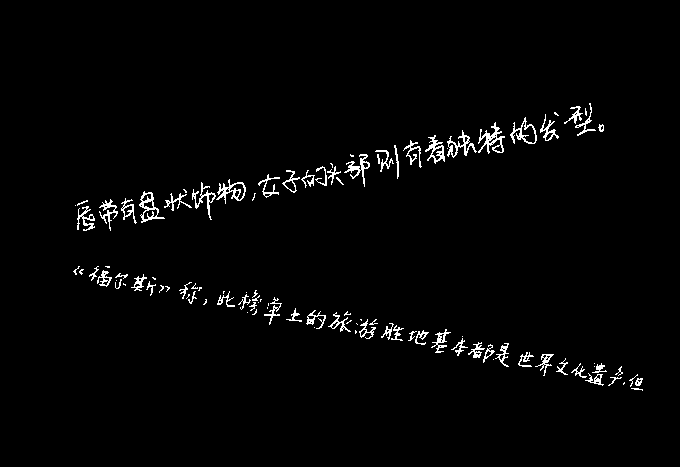 唇带有盘状饰物,女子的头部则有着独特的发型。
《福尔斯》称,此榜单上的旅游胜地基本都是世界文化遗产,但